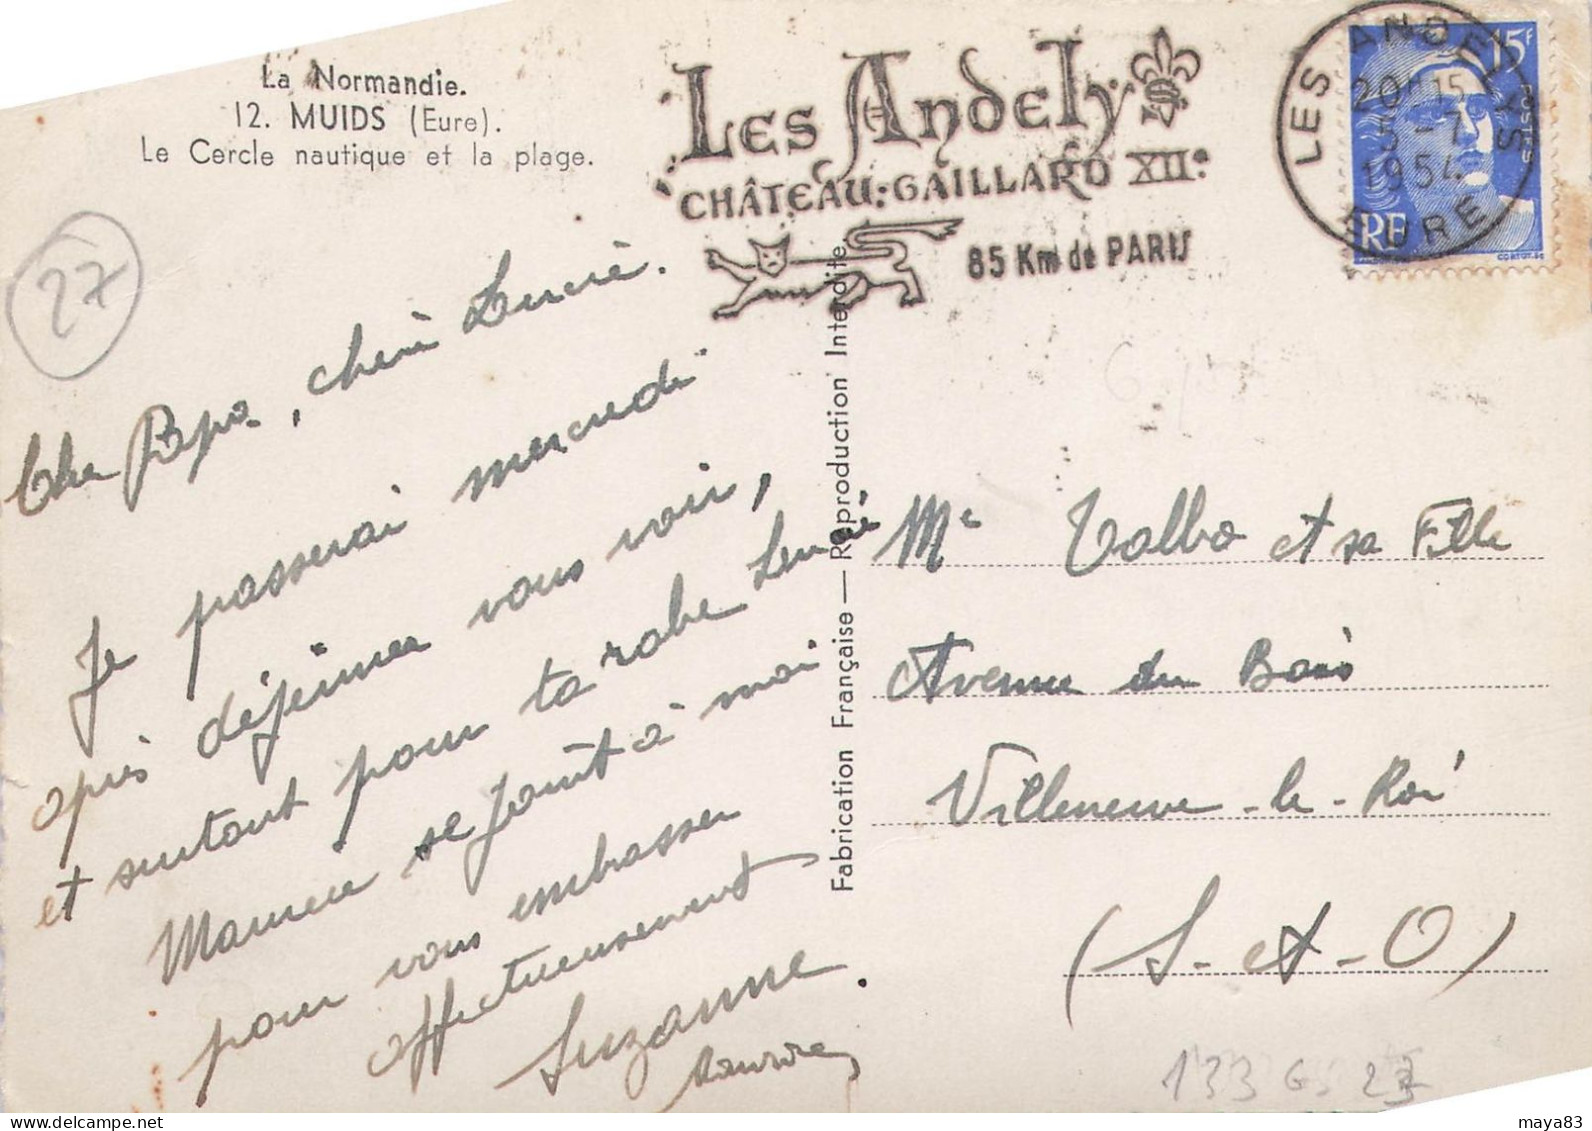 La Normandie.
12. MUIDS (Eure).
Le Cercle nautique et la plage.
LES ANDELYS
CHÂTEAU-GAILLARD XIIe
85 Km de PARIS
LES ANDELYS
20H15
5-7
1954
EURE
15F
POSTES
RF
27
Cher Papa, chère Lucie.
Je passerai mercredi
après déjeuner vous voir,
et surtout pour ta robe
se joint à moi
pour vous embrasser
affectueusement
Suzanne
Mr et sa Fille
Avenue du Bois
Villeneuve-le-Roi
(S-et-O)
Fabrication Française — Reproduction Interdite
133
maya83